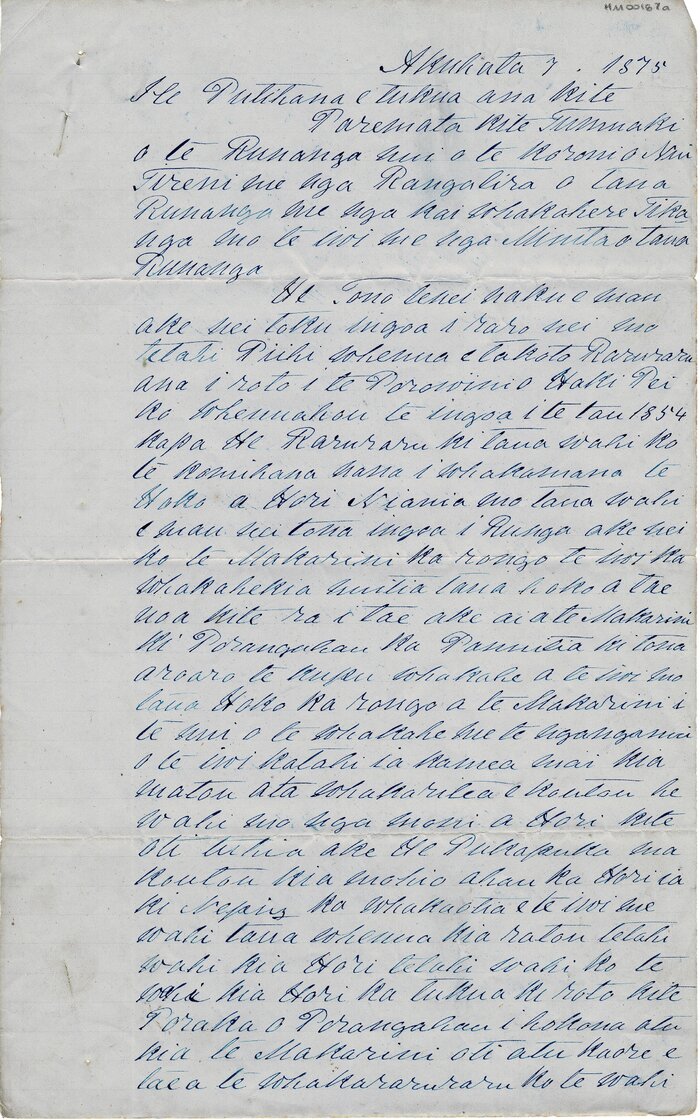 HM00187a
Akuhata 7. 1875
He Putihana e tukua ana kite
Paremata kite Tumuaki
o te Runanga nui o te koroni o Niu
Tireni me nga Rangatira o tana
Runanga me nga kai whakahere Tika
nga mo te iwi me nga Minita o tana
Runanga
He Tono tenei naku e mau
ake nei toku ingoa i raro nei mo
tetahi Piihi whenua e takoto Raruraru
ana i roto i te Porowini o Haki Pei
ko Whenuahou te ingoa i te tau 1854
kapa He Raruraru ki tana wahi ko
te komihana nana i whakamana te
Hoko a Hori Niania mo tana wahi
e mau nei tona ingoa i Runga ake nei
ko te Makarini ka rongo te iwi ka
whakahekia nuitia tana hoko a tae
noa kite ra i tae ake ai a te Makarini
ki Porangahau ka Panuitia ki tona
aroaro te kupu whakahe a te iwi mo
tana Hoko ka rongo a te Makarini i
te nui o te whakahe me te ngangau
o te iwi katahi ia kamea mai kia
matou ata whakaritea e koutou he
wahi mo nga moni a Hori kite
oti tuhia ake He Pukapuka ma
koutou kia mohio ahau ka Hori ia
ki Nepia ka whakaotia e te iwi me
wahi tana whenua kia ratou tetahi
wahi kia Hori tetahi wahi ko te
wahi kia Hori ka tukua ki roto kite
Poraka o Porangahau i hokona atu
kia te Makarini oti atu kaore e
taea te whakararuraru ko te wahi